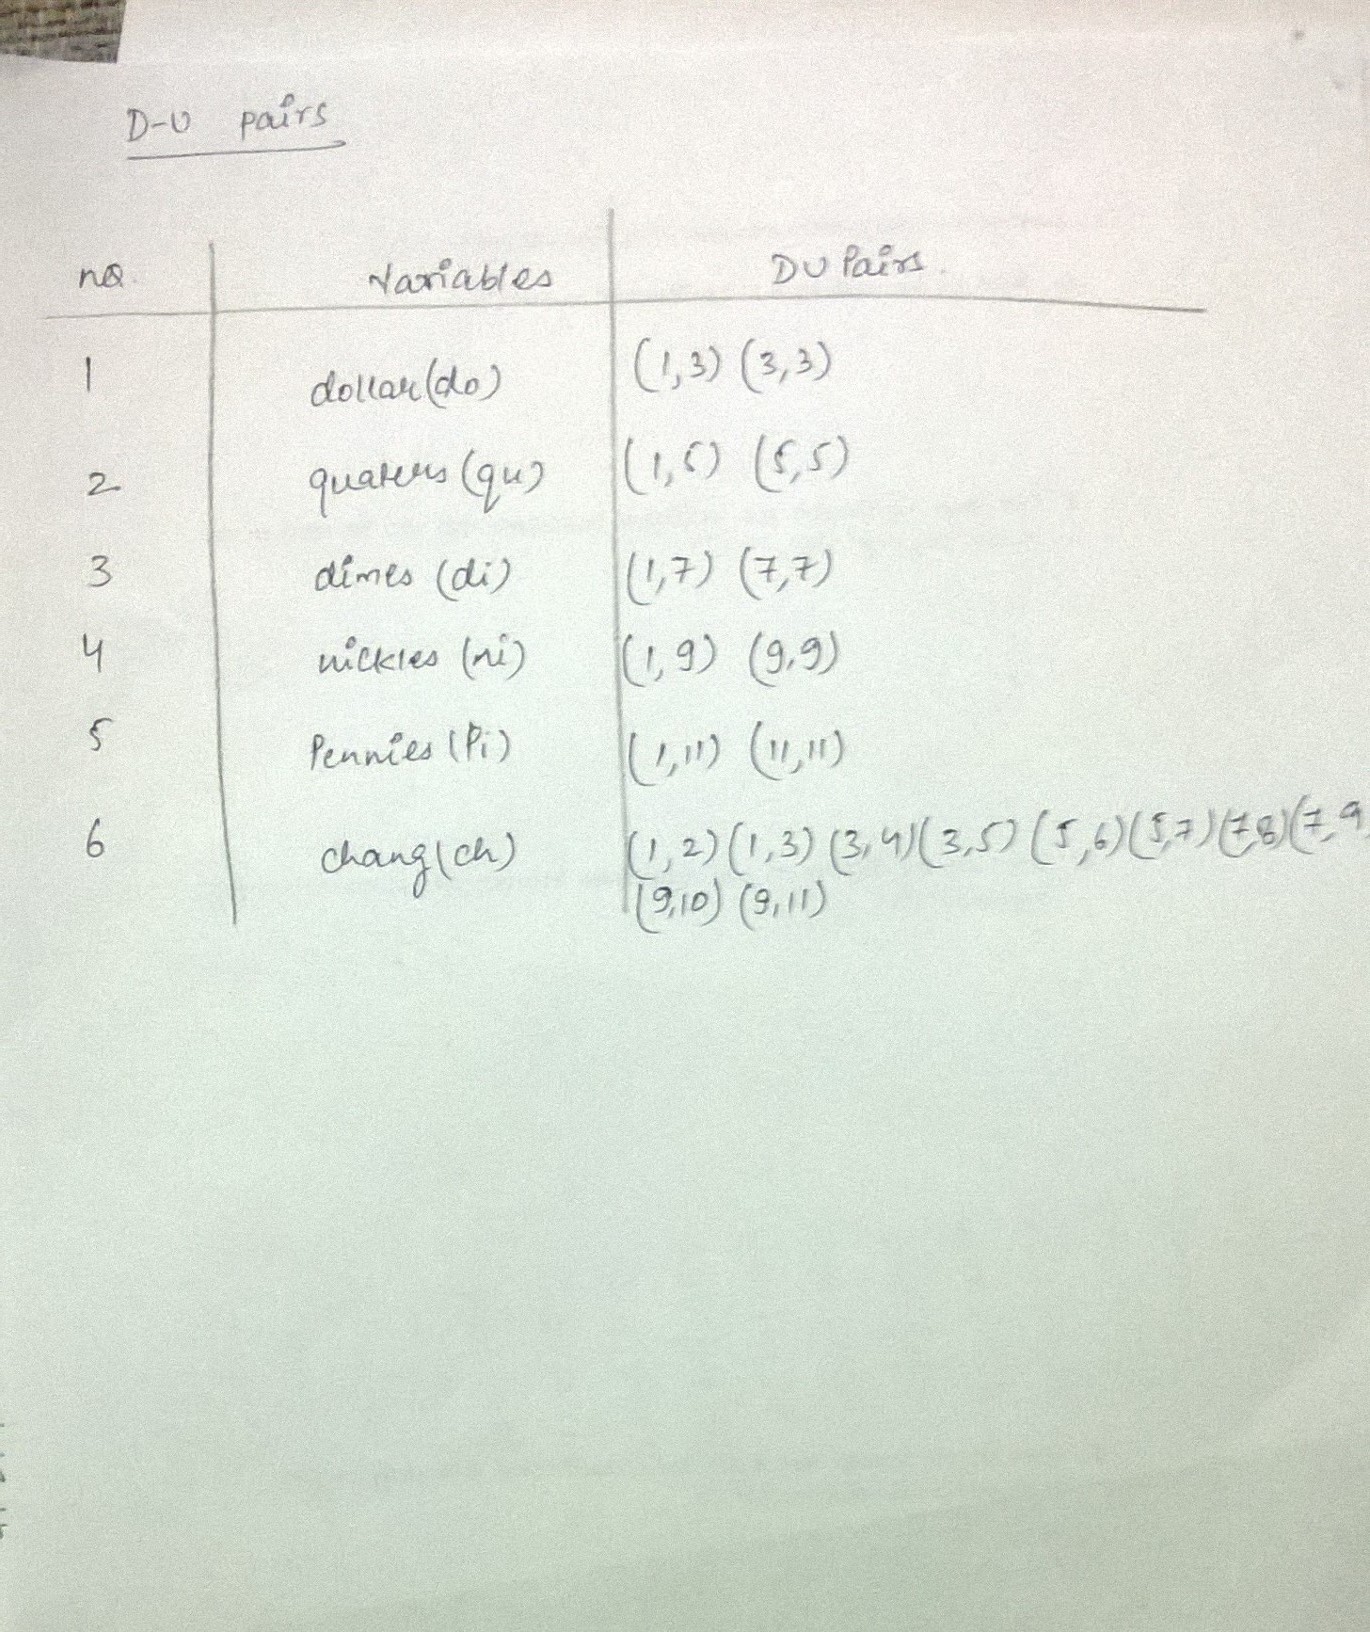 D-U pairs
no. Variables DU Pairs.
1 dollar(do) (1,3) (3,3)
2 quaters (qu) (1,5) (5,5)
3 dimes (di) (1,7) (7,7)
4 nickles (ni) (1,9) (9,9)
5 Pennies (Pi) (1,11) (11,11)
6 chang(ch) (1,2) (1,3) (3,4) (3,5) (5,6) (5,7) (7,8) (7,9
(9,10) (9,11)